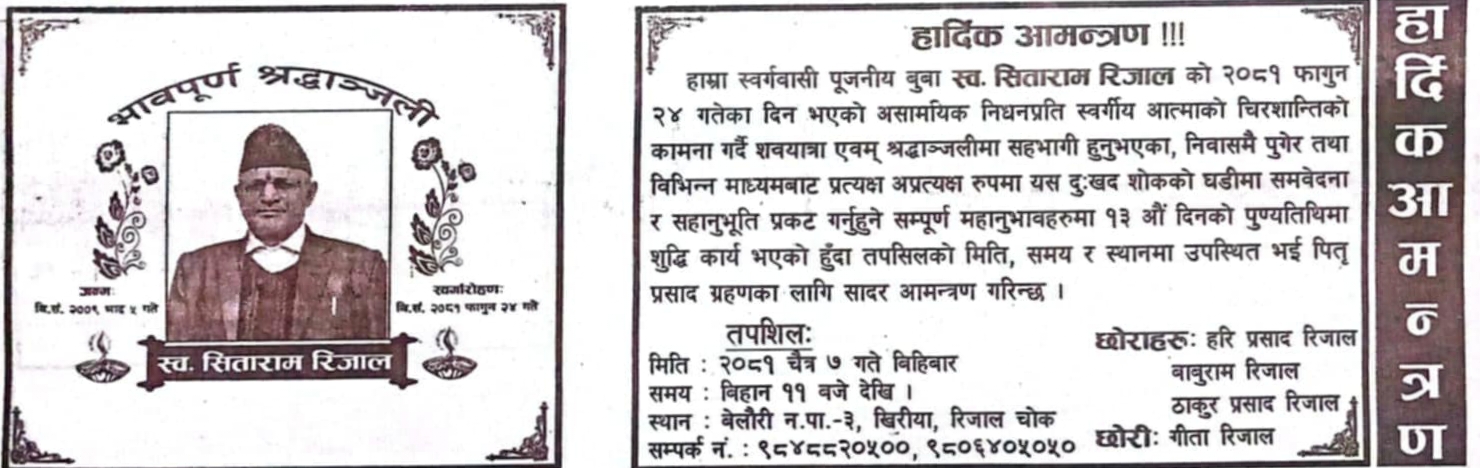 भावपूर्ण श्रद्धाञ्जली
जन्मः
वि.सं. २००९ भाद्र ५ गते
स्वर्गारोहणः
वि.सं. २०८१ फागुन २४ गते
स्व. सिताराम रिजाल
हार्दिक आमन्त्रण !!!
हाम्रा स्वर्गवासी पूजनीय बुबा स्व. सिताराम रिजाल को २०८१ फागुन
२४ गतेका दिन भएको असामयिक निधनप्रति स्वर्गीय आत्माको चिरशान्तिको
कामना गर्दै शवयात्रा एवम् श्रद्धाञ्जलीमा सहभागी हुनुभएका, निवासमै पुगेर तथा
विभिन्न माध्यमबाट प्रत्यक्ष अप्रत्यक्ष रुपमा यस दुःखद शोकको घडीमा समवेदना
र सहानुभूति प्रकट गर्नुहुने सम्पूर्ण महानुभावहरुमा १३ औं दिनको पुण्यतिथिमा
शुद्धि कार्य भएको हुँदा तपसिलको मिति, समय र स्थानमा उपस्थित भई पितृ
प्रसाद ग्रहणका लागि सादर आमन्त्रण गरिन्छ ।
तपशिलः
मिति : २०८१ चैत्र ७ गते बिहिबार
समय : विहान ११ वजे देखि ।
स्थान : बेलौरी न.पा.-३, खिरीया, रिजाल चोक
सम्पर्क नं. : ९८४८८२०५००, ९८०६४०५०५०
छोराहरुः हरि प्रसाद रिजाल
बाबुराम रिजाल
ठाकुर प्रसाद रिजाल
छोरीः गीता रिजाल
हार्दिक आमन्त्रण